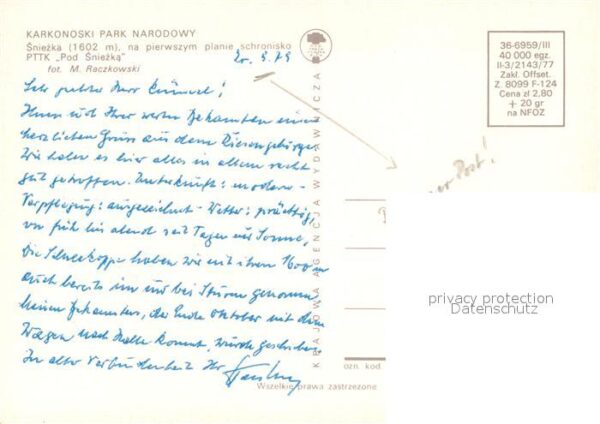 KARKONOSKI PARK NARODOWY
Śnieżka (1602 m), na pierwszym planie schronisko
PTTK „Pod Śnieżką"
fot. M. Raczkowski
5.79
36-6959/III
40 000 egz.
II-3/2143/77
Zakł. Offset.
Z. 8099 F-124
Cena zł 2,80
+ 20 gr
na NFOZ
KRAJOWA AGENCJA WYDAWNICZA
Sehr geehrter Herr
Ihnen und Ihrer werten Bekannten einen
herzlichen Gruss aus dem Riesengebirge.
Wir haben es hier alles in allem recht
gut getroffen. Unterkunft: modern -
Verpflegung: ausgezeichnet - Wetter: prächtig,
von früh bis abend seit Tagen nur Sonne.
Die Schneekoppe haben wir mit ihren 1600 m
auch bereits im und bei Sturm genommen.
meinen Bekannten, der Ende Oktober mit dem
Wagen nach Halle kommt, wurde geschrieben.
In alter Verbundenheit Ihr
Post!
privacy protection
Datenschutz
ozn. kod
Wszelkie prawa zastrzeżone